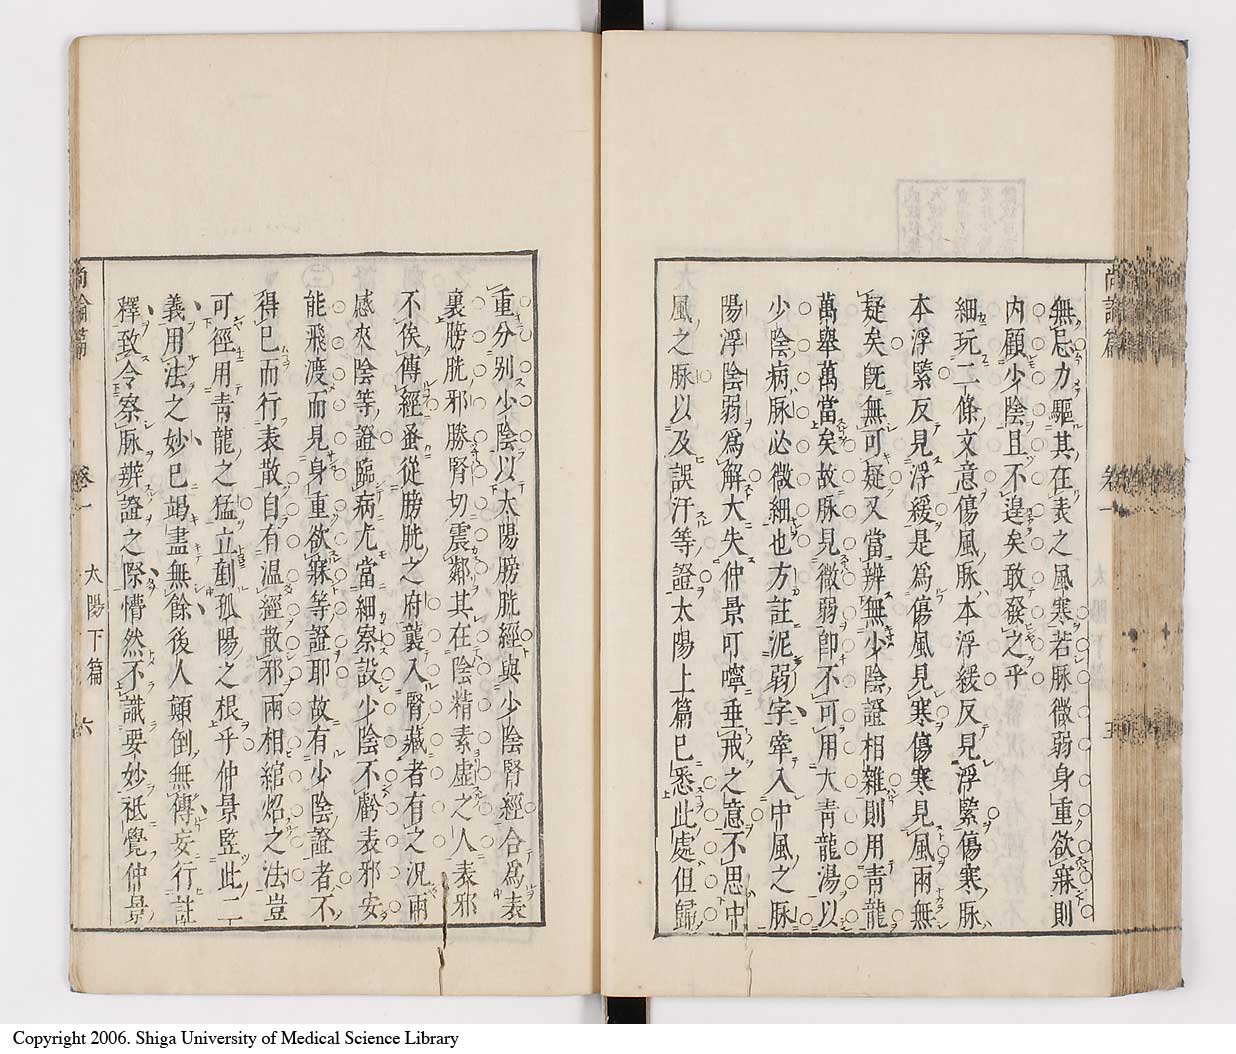 無忌力驅其在表之風寒若脉微弱身重欲寐則
内顧少陰且不遑矣敢發之乎
細玩二條文意傷風脉本浮緩反見浮緊傷寒脉
本浮緊反見浮緩是爲傷風見寒傷寒見風兩無
疑矣旣無可疑又當辨無少陰證相雜則用青龍
萬舉萬當矣故脉見微弱卽不可用大青龍湯以
少陰病脉必微細也方註泥弱字牽入中風之脉
陽浮陰弱爲解大失仲景叮嚀垂戒之意不思中
風之脉以及誤汗等證太陽上篇已悉此處但歸
尚論篇 卷一
重分别少陰以太陽膀胱經與少陰腎經合爲表
裏膀胱邪勝腎切震鄰其在陰精素虛之人表邪
不俟傳經蚤從膀胱之府襲入腎藏者有之况兩
感夾陰等證臨病尤當細察設少陰不虧表邪安
能飛渡而見身重欲寐等證耶故有少陰證者不
得已而行表散自有溫經散邪兩相綰炤之法豈
可徑用青龍之猛立剷孤陽之根乎仲景竪此二
義用法之妙已竭盡無餘後人顛倒無傳妄行註
釋致令察脉辨證之際懵然不識要妙祇覺仲景
尚論篇 卷一 太陽下篇 六
Copyright 2006. Shiga University of Medical Science Library